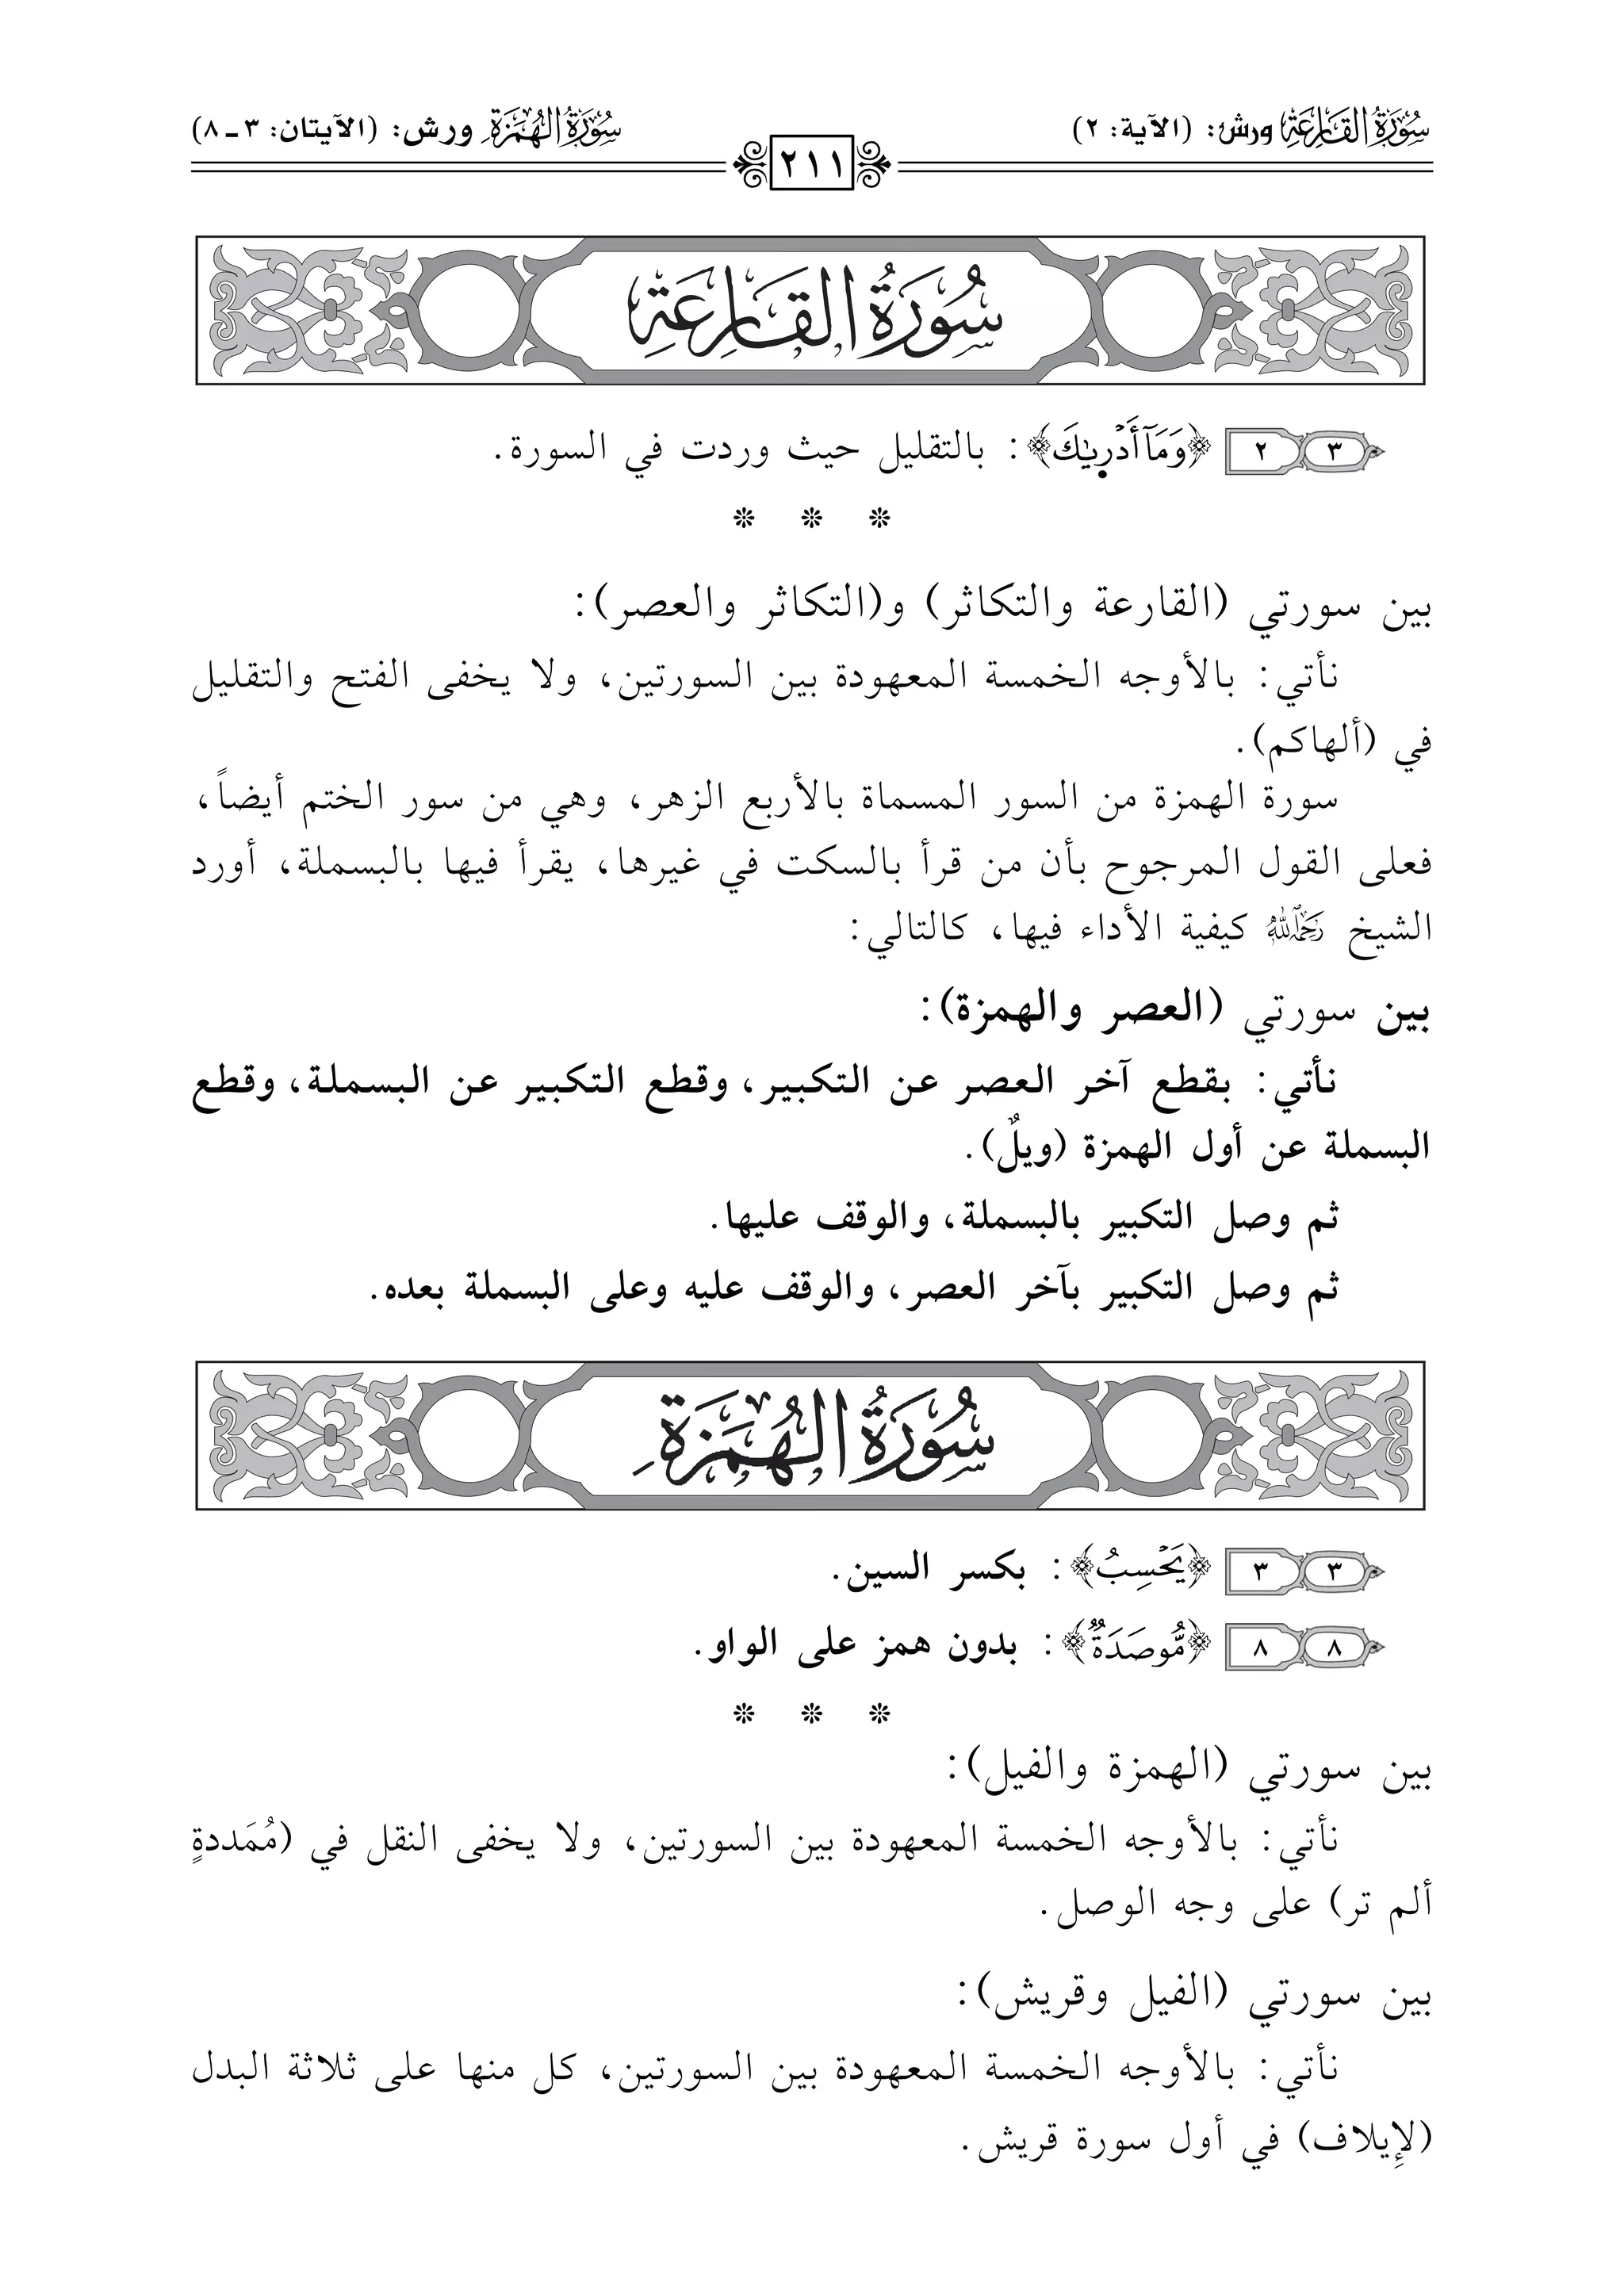 سُورَةُ القَارِعَةِ ورش: (الآية: ٢)
سُورَةُ الهُمَزَةِ ورش: (الآيتان: ٣ ـ ٨)
٢١١
سُورَةُ القَارِعَةِ
٣ ٢ ﴿وَمَآ أَدْرِىٰكَ﴾: بالتقليل حيث وردت في السورة.
* * *
بين سورتي (القارعة والتكاثر) و(التكاثر والعصر):
نأتي: بالأوجه الخمسة المعهودة بين السورتين، ولا يخفى الفتح والتقليل
في (ألهاكم).
سورة الهمزة من السور المسماة بالأربع الزهر، وهي من سور الختم أيضاً،
فعلى القول المرجوح بأن من قرأ بالسكت في غيرها، يقرأ فيها بالبسملة، أورد
الشيخ رحمه الله كيفية الأداء فيها، كالتالي:
بين سورتي (العصر والهمزة):
نأتي: بقطع آخر العصر عن التكبير، وقطع التكبير عن البسملة، وقطع
البسملة عن أول الهمزة (ويلٌ).
ثم وصل التكبير بالبسملة، والوقف عليها.
ثم وصل التكبير بآخر العصر، والوقف عليه وعلى البسملة بعده.
سُورَةُ الهُمَزَةِ
٣ ٣ ﴿يَحْسِبُ﴾: بكسر السين.
٨ ٨ ﴿مُّوصَدَةٌ﴾: بدون همز على الواو.
* * *
بين سورتي (الهمزة والفيل):
نأتي: بالأوجه الخمسة المعهودة بين السورتين، ولا يخفى النقل في (مُمَددةٍ
ألم تر) على وجه الوصل.
بين سورتي (الفيل وقريش):
نأتي: بالأوجه الخمسة المعهودة بين السورتين، كل منها على ثلاثة البدل
(لإِيلاف) في أول سورة قريش.